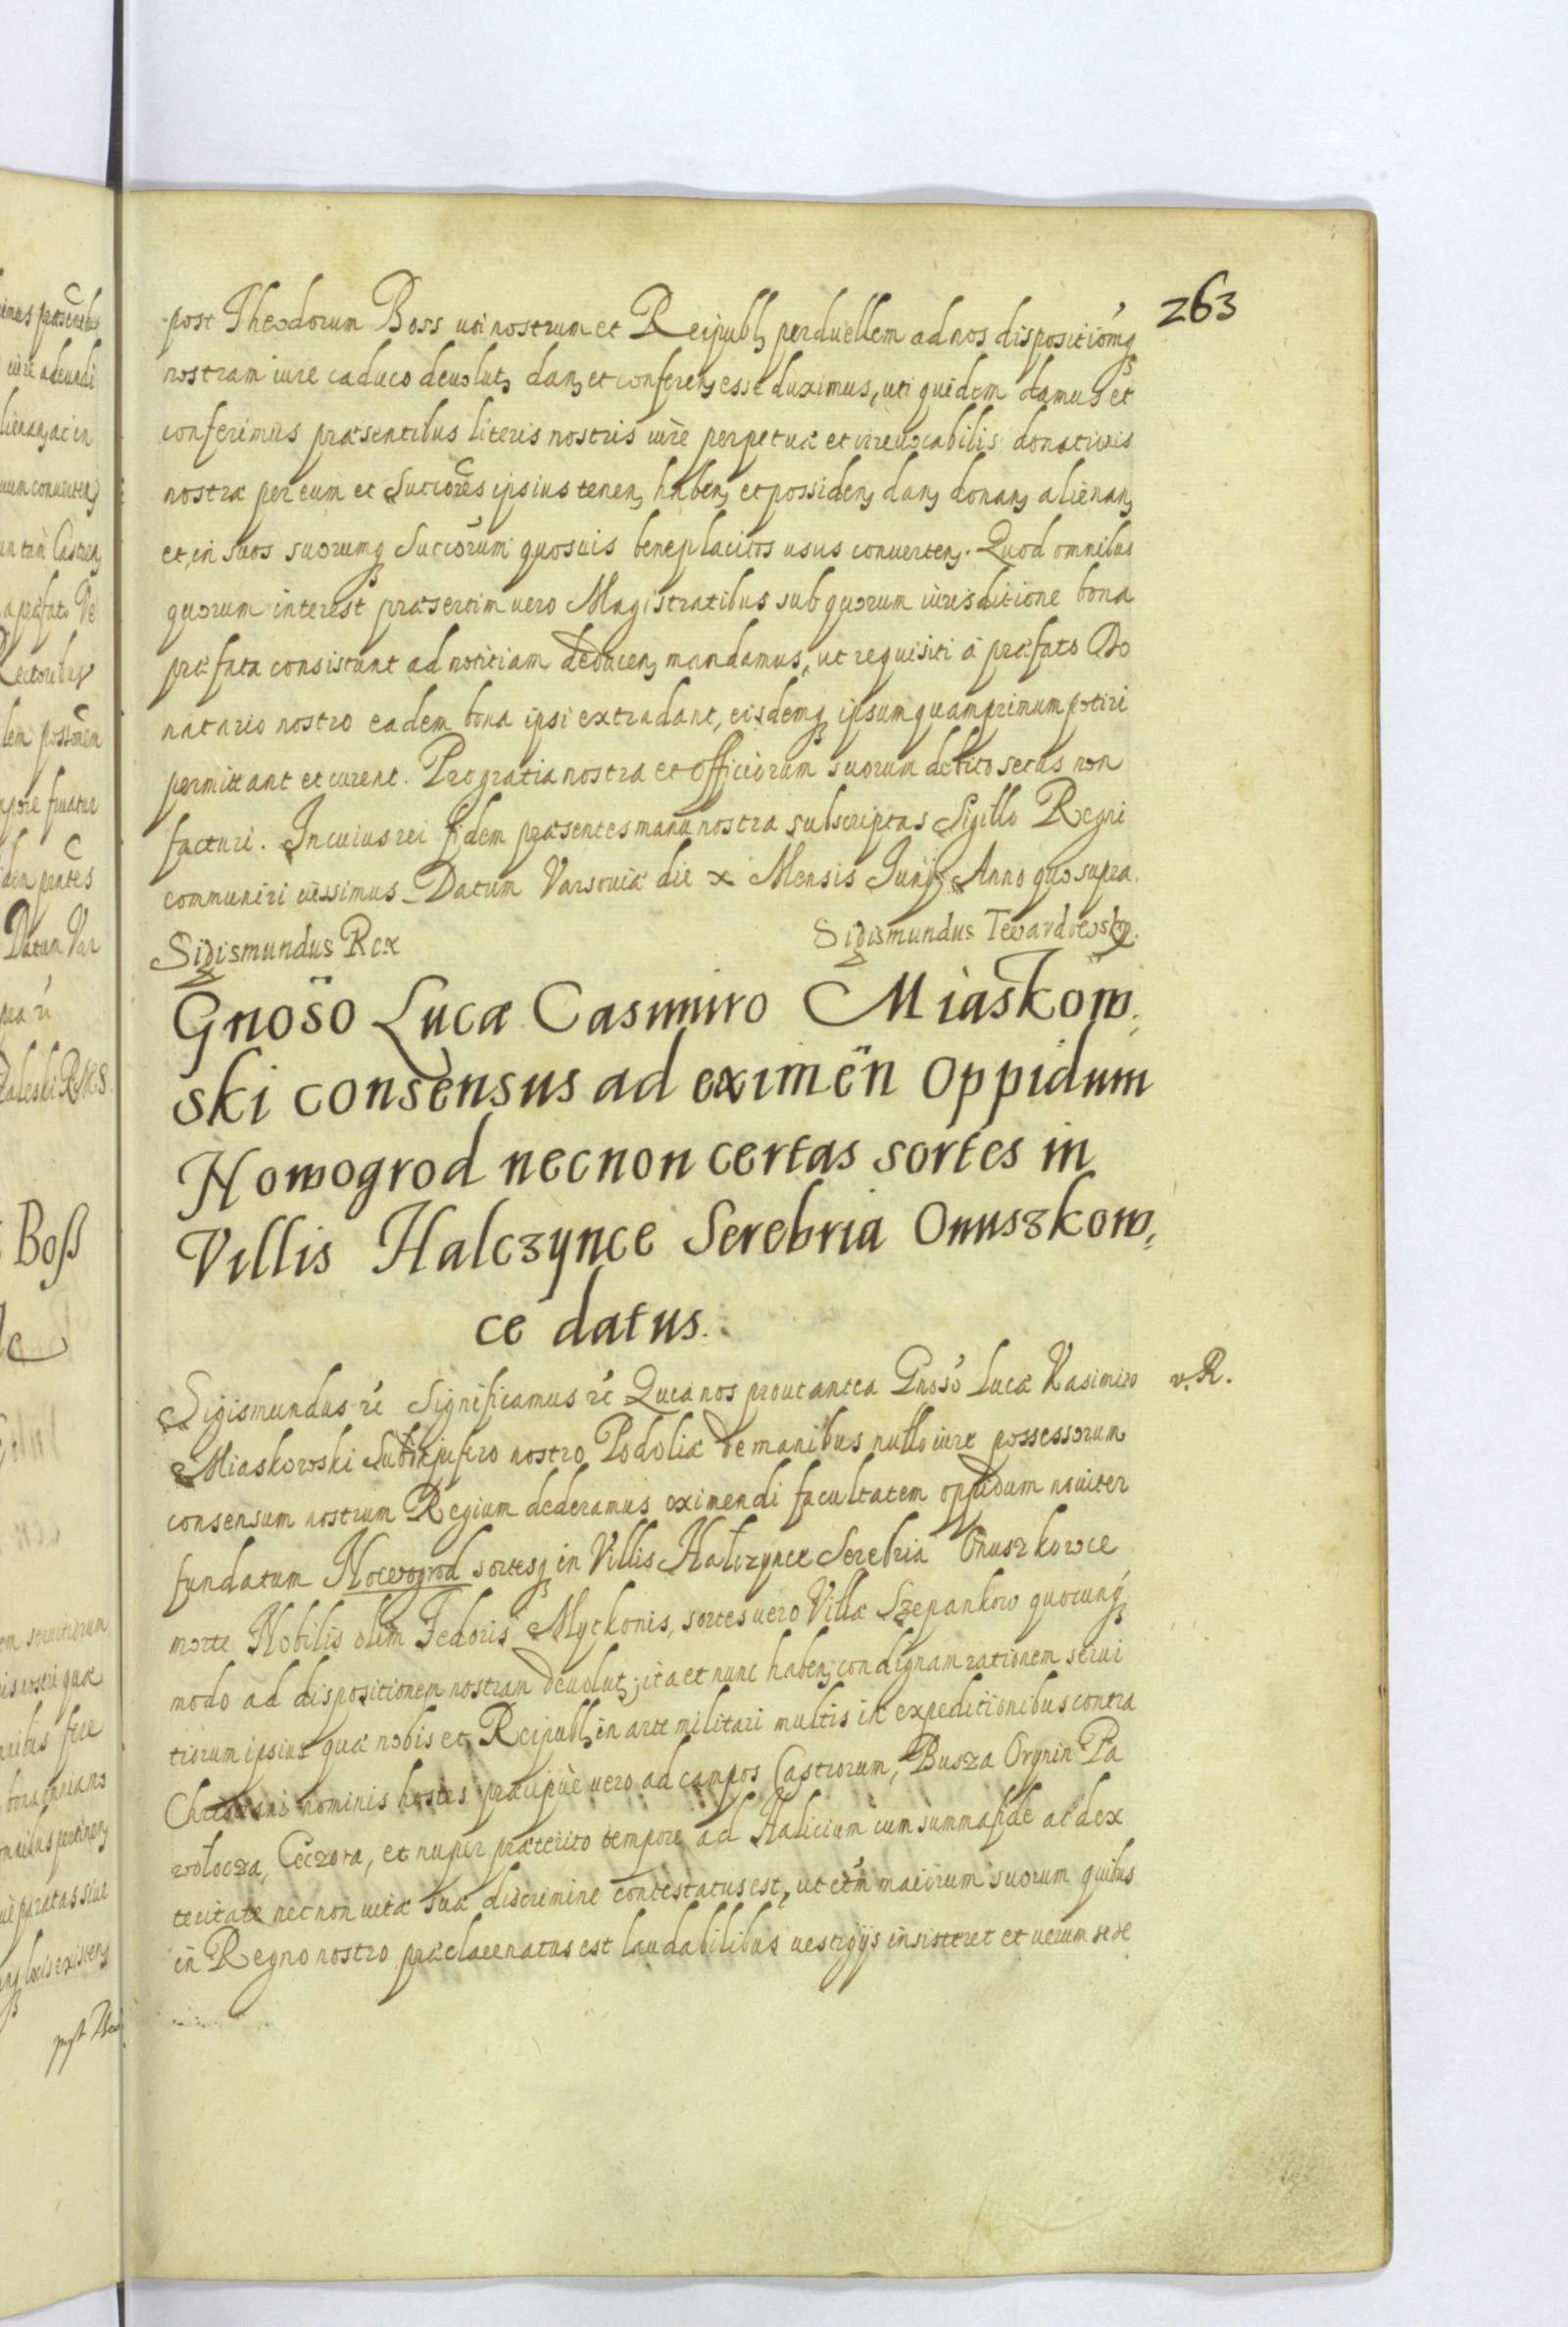 263
post Theodorum Boss uti nostrum et Reipubl, perduellem ad nos dispositiōmq
nostram iure caduco devolut, dan, et conferen, esse duximus, uti quidem damus et
conferimus præsentibus literis nostris iure perpetuæ et irrevocabilis donationis
nostræ per eum et Succores ipsius tenen, haben, et possiden, dan, donan, alienan,
et, in suos suorumq Succorum quosuis beneplacitos usus converten,. Quod omnibus
quorum interest præsertim vero Magistratibus sub quorum iurisditione bona
præfata consistunt ad notitiam deducen, mandamus, ut requisiti à præfato Do
natario nostro eadem bona ipsi extradant, eisdemq ipsum quamprimum potiri
permittant et curent. Pro gratia nostra et officiorum suorum debito secus non
facturi. In cuius rei fidem præsentes manu nostra subscriptas Sigillo Regni
communiri iussimus. Datum Varsoviæ die x Mensis Junij Anno quo supra.
Sigismundus Rex Sigismundus Twardowsky.
Gnoso Lucæ Casimiro Miaskow,
ski consensus ad eximen oppidum
Nowogrod necnon certas sortes in
Villis Halczynce Serebria Onuszkow,
ce datus.
Sigismundus rc Significamus rc Quia nos prout antea Gnoso Lucæ Kasimiro v. R.
Miaskowski Subdapifero nostro Podoliæ de manibus nullo iure possessorum
consensum nostrum Regium dederamus eximendi facultatem oppidum noviter
fundatum Nowogrod sortesq in Villis Halczynce Serebria Onuszkowce
morte Nobilis olim Fedoris Myckonis, sortes vero Villæ Szepankow quocunq
modo ad dispositionem nostram devolut,; ita et nunc haben, condignam rationem servi
tiorum ipsius quæ nobis et Reipubl, in arte militari multis in expeditionibus contra
Christiani nominis hostes præcipuè vero ad campos Castrorum, Busza Orynin Pa
wołocza, Ceczora, et nuper præterito tempore ad Halicium cum summa fide ac dex
teritate necnon vitæ suæ discrimine contestatus est, ut etm maiorum suorum quibus
in Regno nostro præclare natus est laudabilibus vestigijs insisteret et verum sese